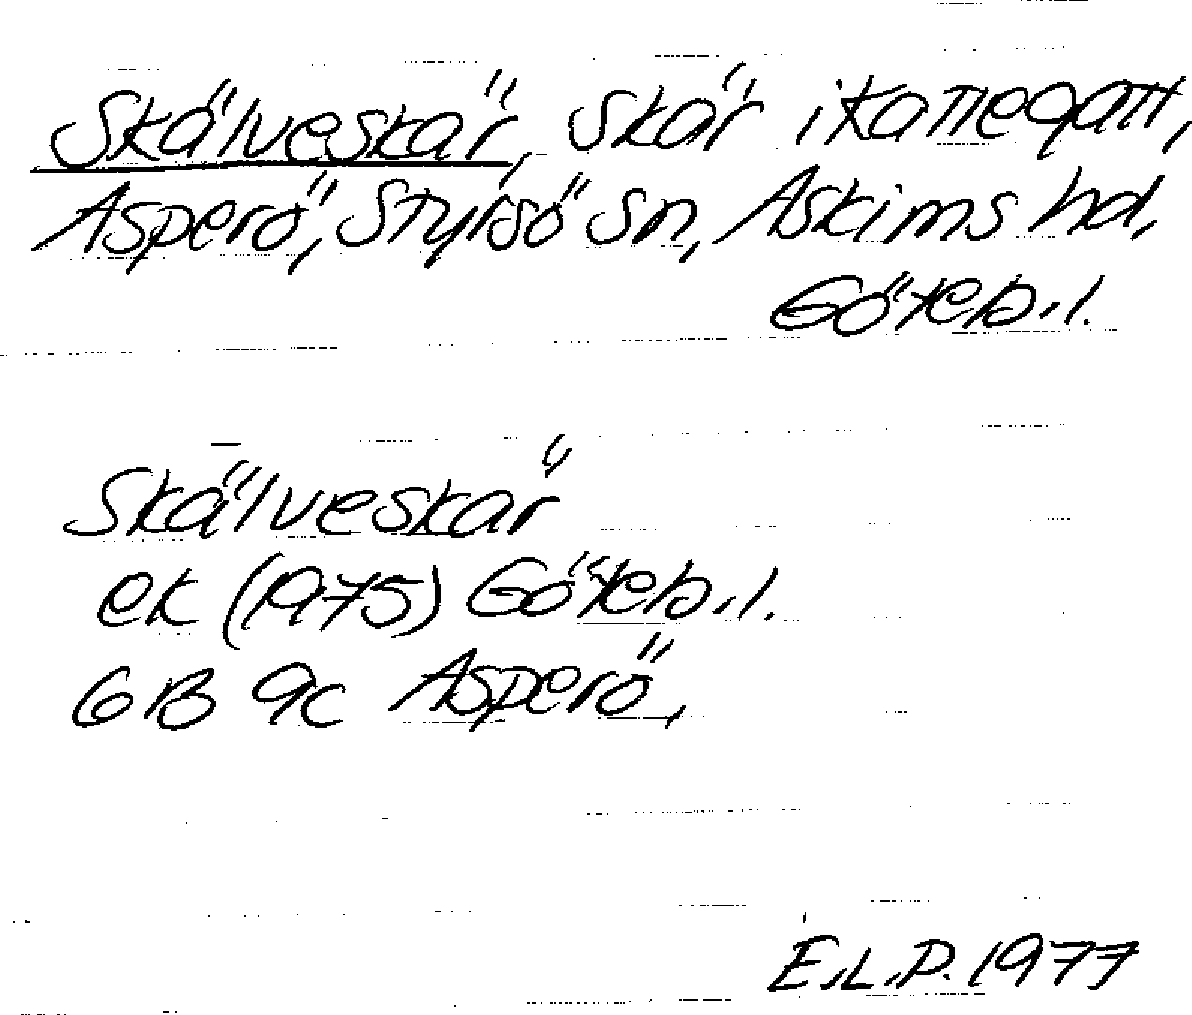 Skälveskär, skär i Kattegatt,
Asperö, Styrsö sn, Askims hd,
Göteb. l.
Skälveskär
ek (1975) Göteb. l.
6B 9c Asperö,
E.L.P. 1977